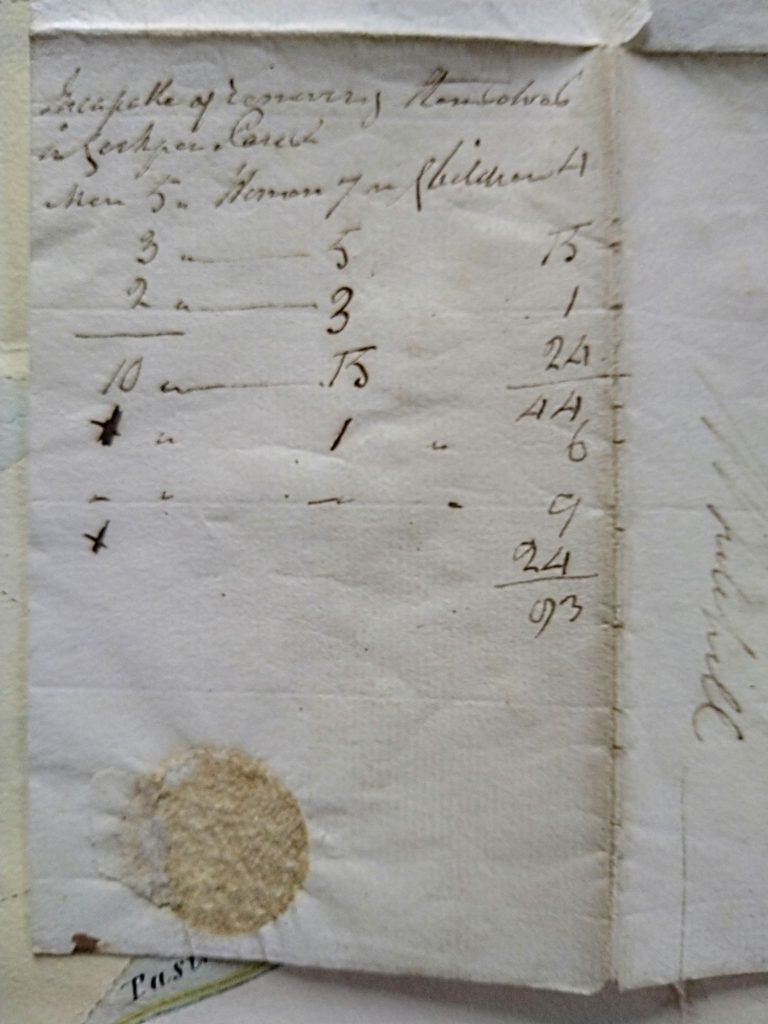 Incapable of removing themselves
in
Men 5 " Women 7 " Children 4
3 " — 5 15
2 " — 3 1
10 " — 15 24
44
x " 1 " 6
" " — " 9
x
24
93